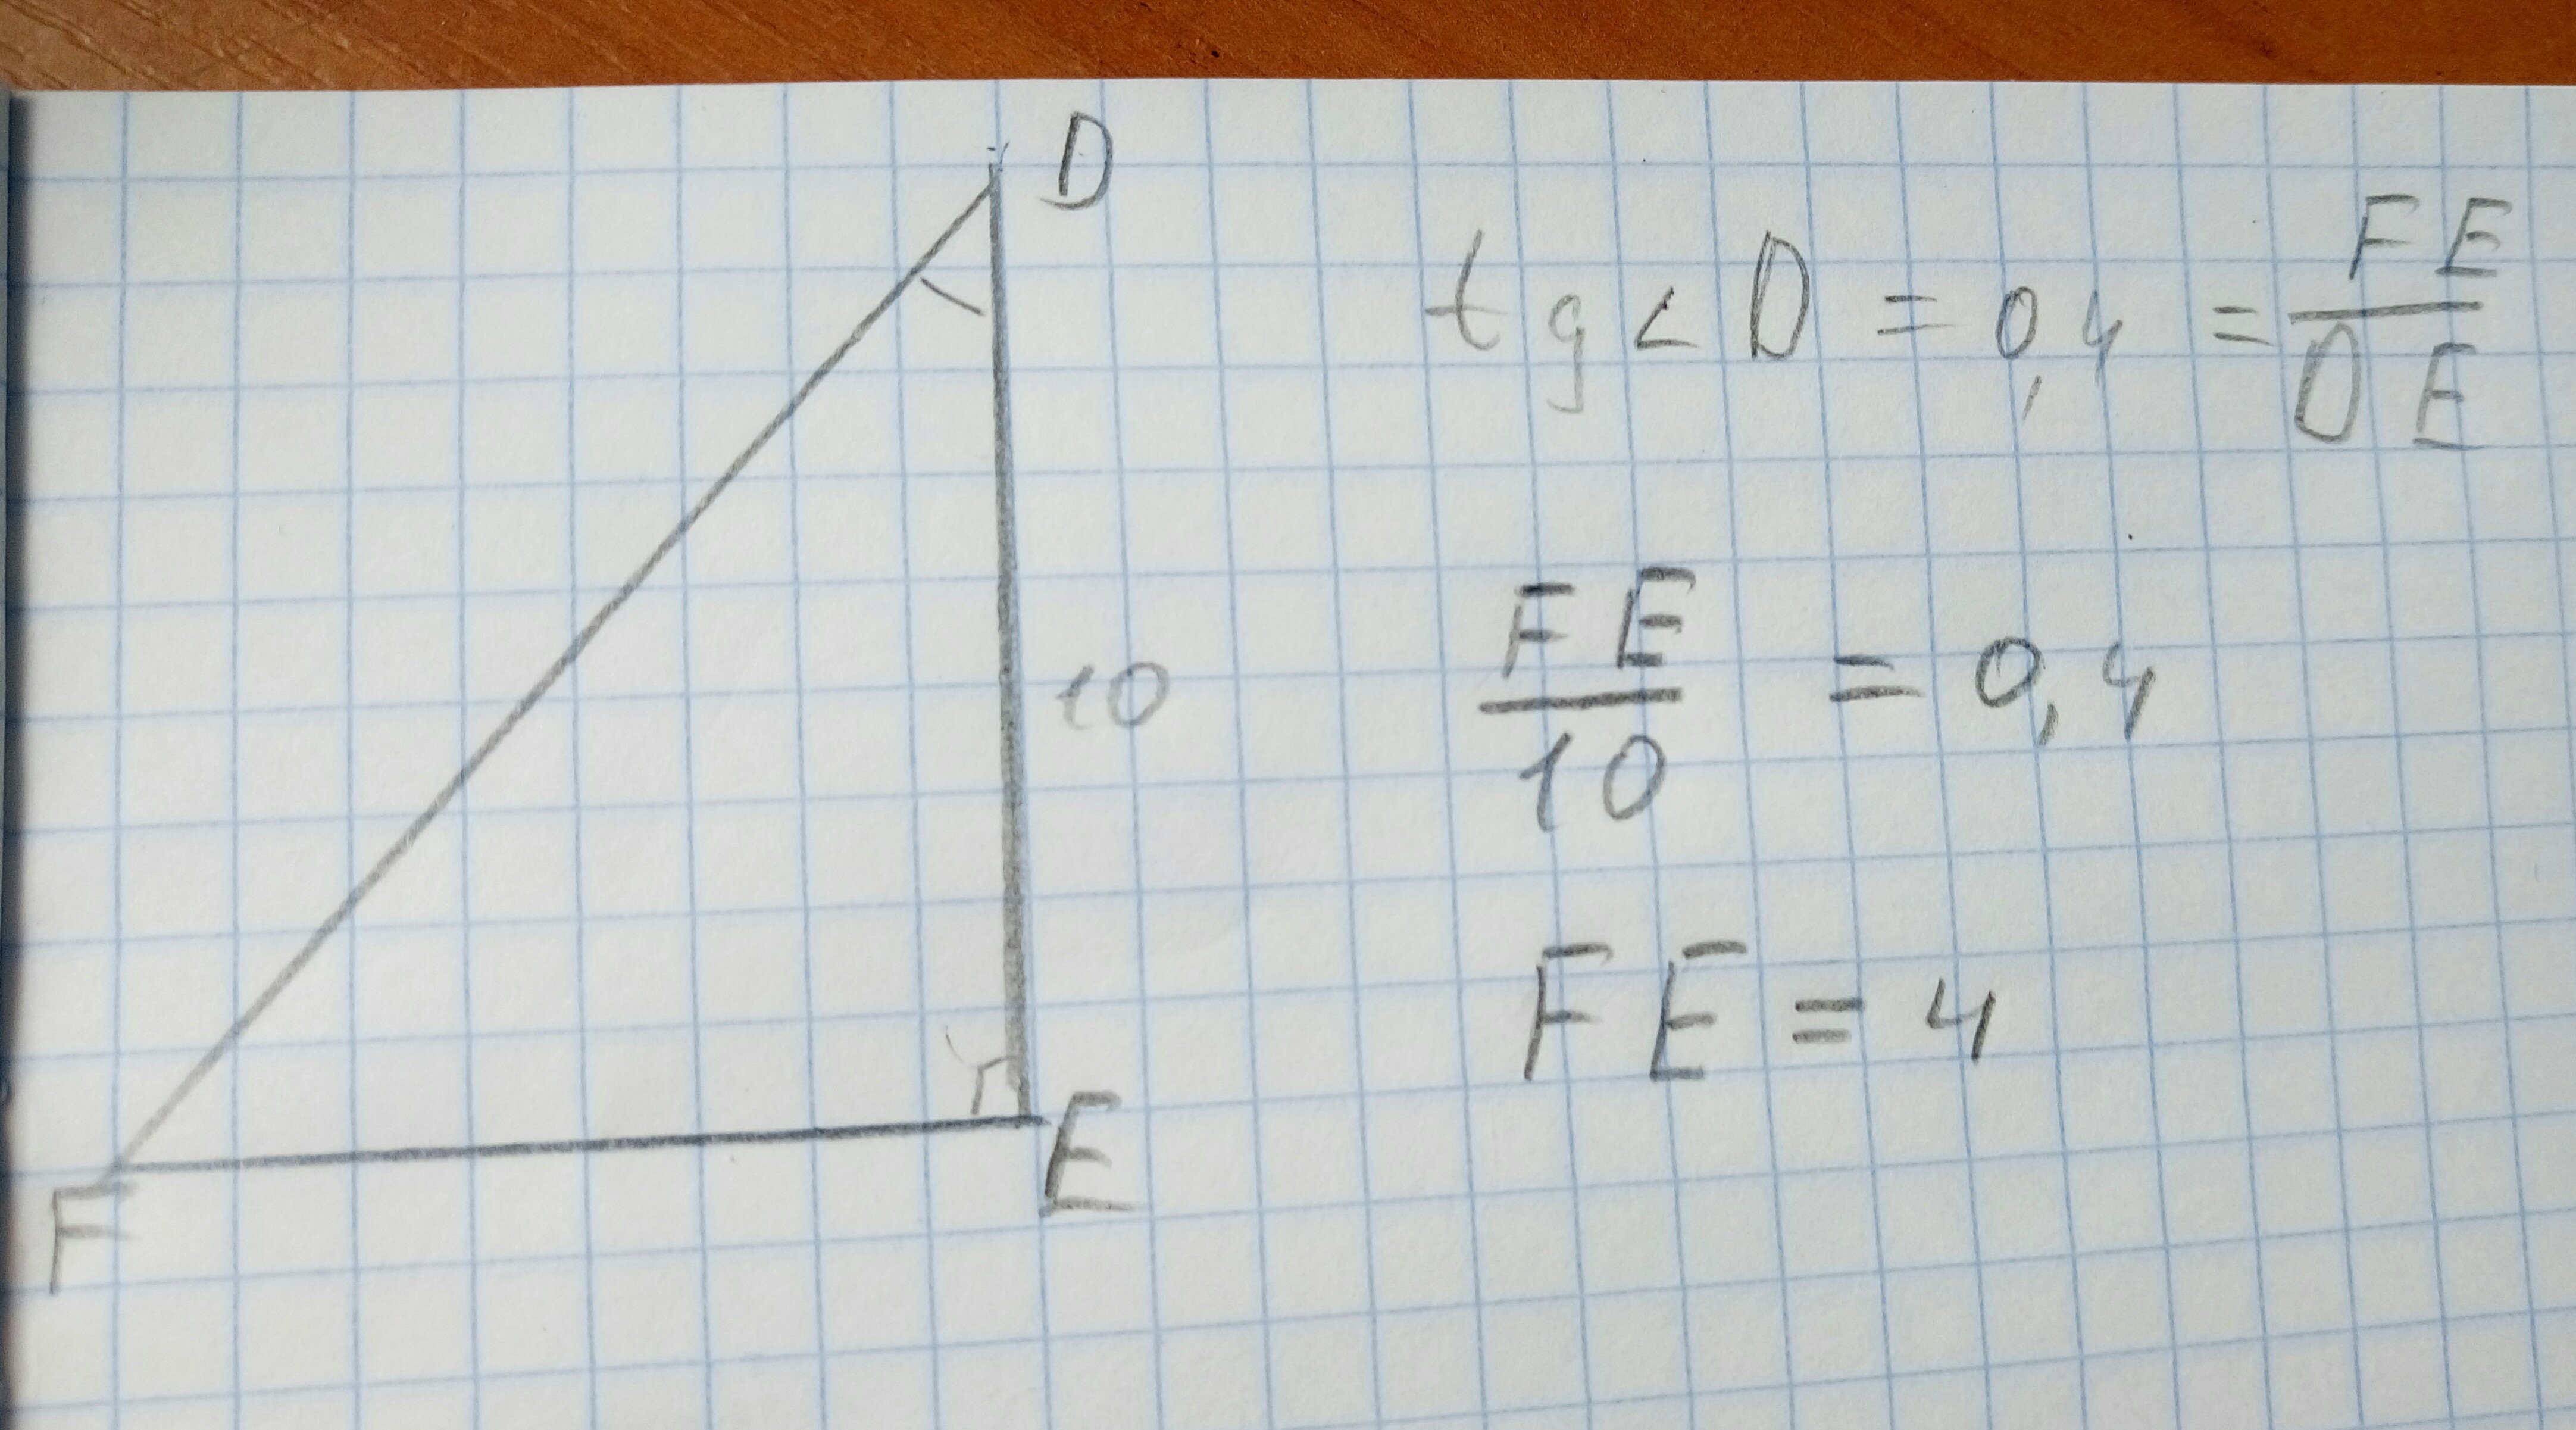 D
tg < D = 0,4 = FE/DE
10
FE/10 = 0,4
FE = 4
F
E